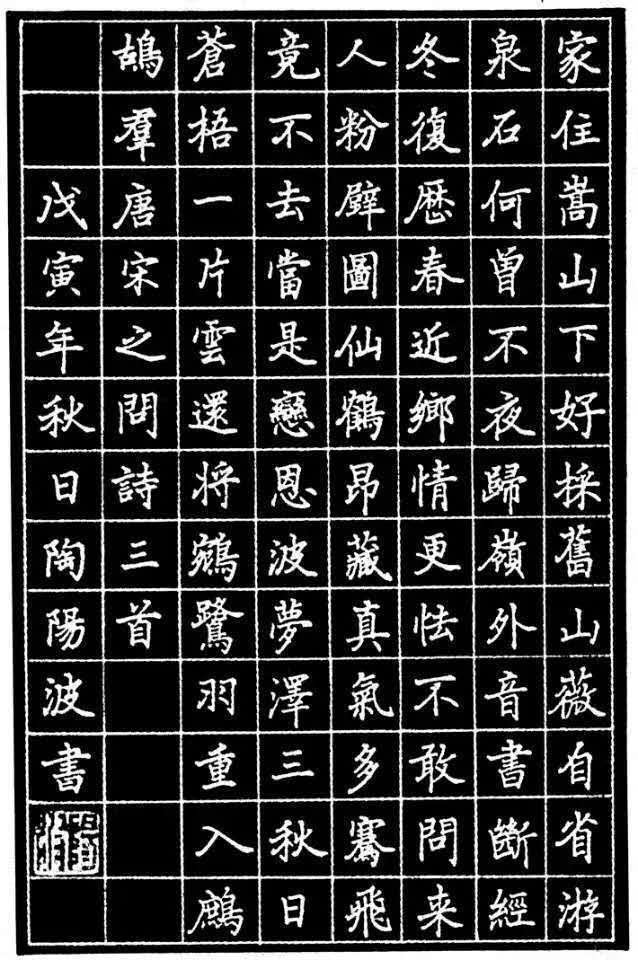 家住嵩山下好採舊山薇自省游
泉石何曾不夜歸嶺外音書斷經
冬復歷春近鄉情更怯不敢問来
人粉壁圖仙鶴昂藏真氣多騫飛
竟不去當是戀恩波夢澤三秋日
蒼梧一片雲還将鵷鷺羽重入鷓
鴣羣唐宋之問詩三首
戊寅年秋日陶陽波書